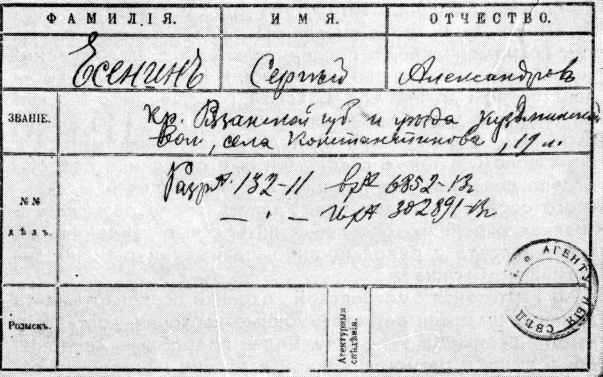 ФАМИЛІЯ. ИМЯ. ОТЧЕСТВО.
Есенинъ Сергѣй Александров
ЗВАНІЕ.
Кр. Рязанской губ и уѣзда Кузьминской
Вол, села Константинова, 19 л.
№№
дѣлъ.
Разр А 132-11 вх А 6852-13
— " — 302891-13
Розыскъ.
Агентурныя
свѣдѣнія.
АГЕНТУРНЫЯ СВѢД